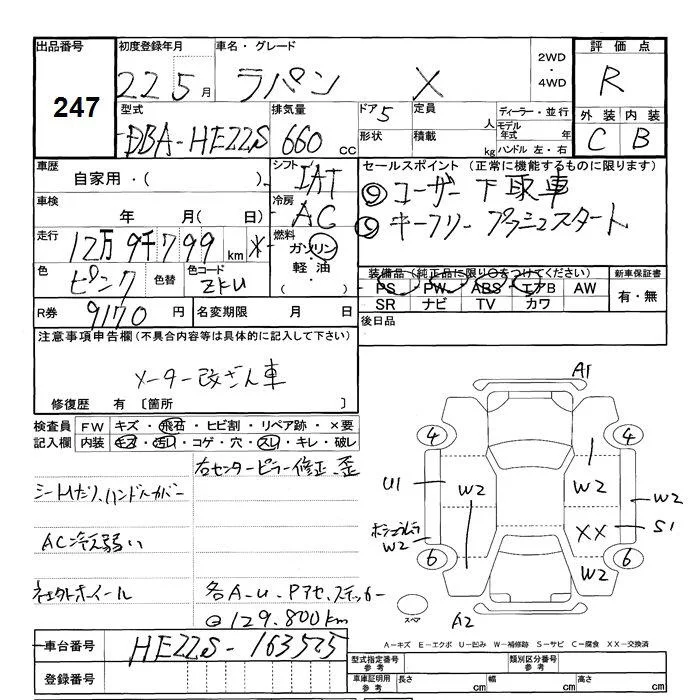 出品番号
247
初度登録年月
22 5月
車名・グレード
ラパン X
2WD
・
4WD
評価点
R
外装 内装
C B
型式
DBA-HE22S
排気量
660 cc
ドア 5
形状
定員 人
積載 kg
ディーラー・並行
モデル年式 年
ハンドル 左・右
車歴
自家用・( )
シフト
IAT
車検
年 月( 日)
冷房
AC
走行
12万9千799 km
燃料
ガソリン
軽油
・( )
色
ピンク
色替
色コード
ZKU
R券
9170 円
名変期限 月 日
セールスポイント (正常に機能するものに限ります)
◎ユーザー下取車
◎キーフリープッシュスタート
装備品(純正品に限り○をつけてください)
PS PW ABS エアB AW
SR ナビ TV カワ
新車保証書
有・無
後日品
注意事項申告欄(不具合内容等は具体的に記入して下さい)
メーター改ざん車
修復歴 有 〔箇所 〕
検査員記入欄
FW キズ・飛石・ヒビ割・リペア跡・×要
内装 キズ・汚れ・コゲ・穴・スレ・キレ・破レ
右センターピラー修正、歪
シートへたり、ハンドルカバー
AC冷え弱い
社外ホイール
各A-U、Pアセ、ステッカー
@129.800km
A1
4 4
U1 W2 W2 W2
XX S1
W2
6 6
W2
スペア
A2
A-キズ E-エクボ U-凹み W-補修跡 S-サビ C-腐食 XX-交換済
車台番号
HE22S-163525
登録番号
型式指定番号
参考
類別区分番号
参考
車庫証明用
参考
長さ cm
幅 cm
高さ cm